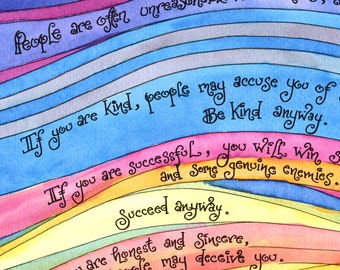 People are often unreasonable
If you are kind, people may accuse you of
Be kind anyway.
If you are successful, you will win s
and some genuine enemies.
Succeed anyway.
u are honest and sincere,
ople may deceive you.